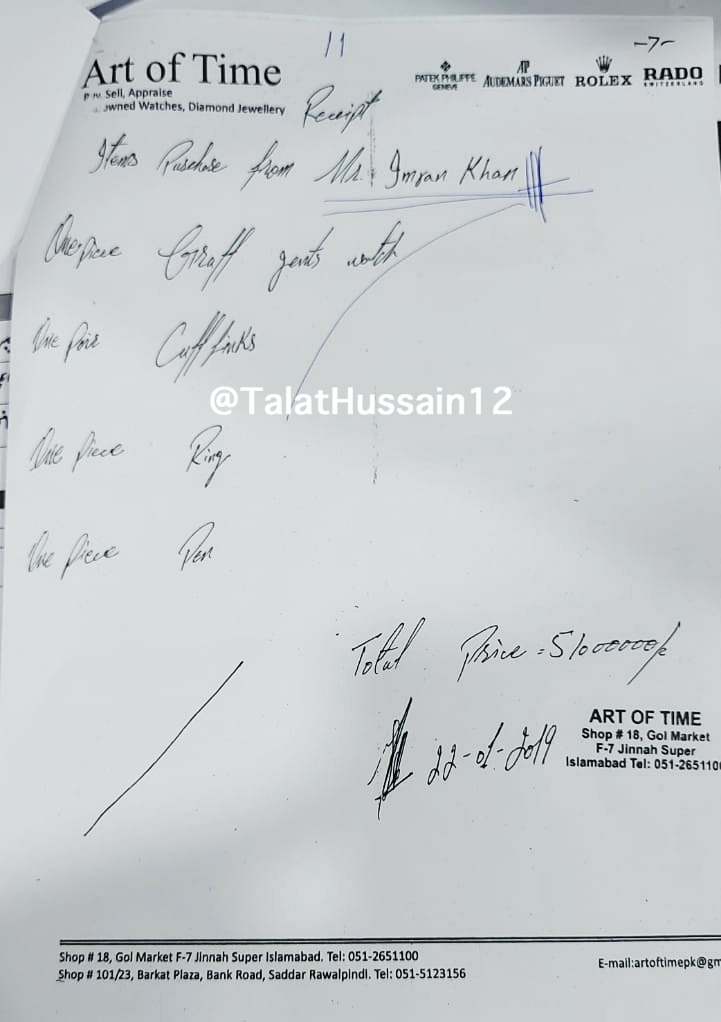 11
-7-
Art of Time
Sell, Appraise
owned Watches, Diamond Jewellery
PATEK PHILIPPE
GENEVE
AP
AUDEMARS PIGUET
ROLEX
RADO
SWITZERLAND
Receipt
Items Purchase from Mr. Imran Khan
One piece Graff gents watch
One pair Cufflinks
@TalatHussain12
One piece Ring
One piece Pen
Total Price = 51000000/-
22-01-2019
ART OF TIME
Shop # 18, Gol Market
F-7 Jinnah Super
Islamabad Tel: 051-265110
Shop # 18, Gol Market F-7 Jinnah Super Islamabad. Tel: 051-2651100
Shop # 101/23, Barkat Plaza, Bank Road, Saddar Rawalpindi. Tel: 051-5123156
E-mail:artoftimepk@gm